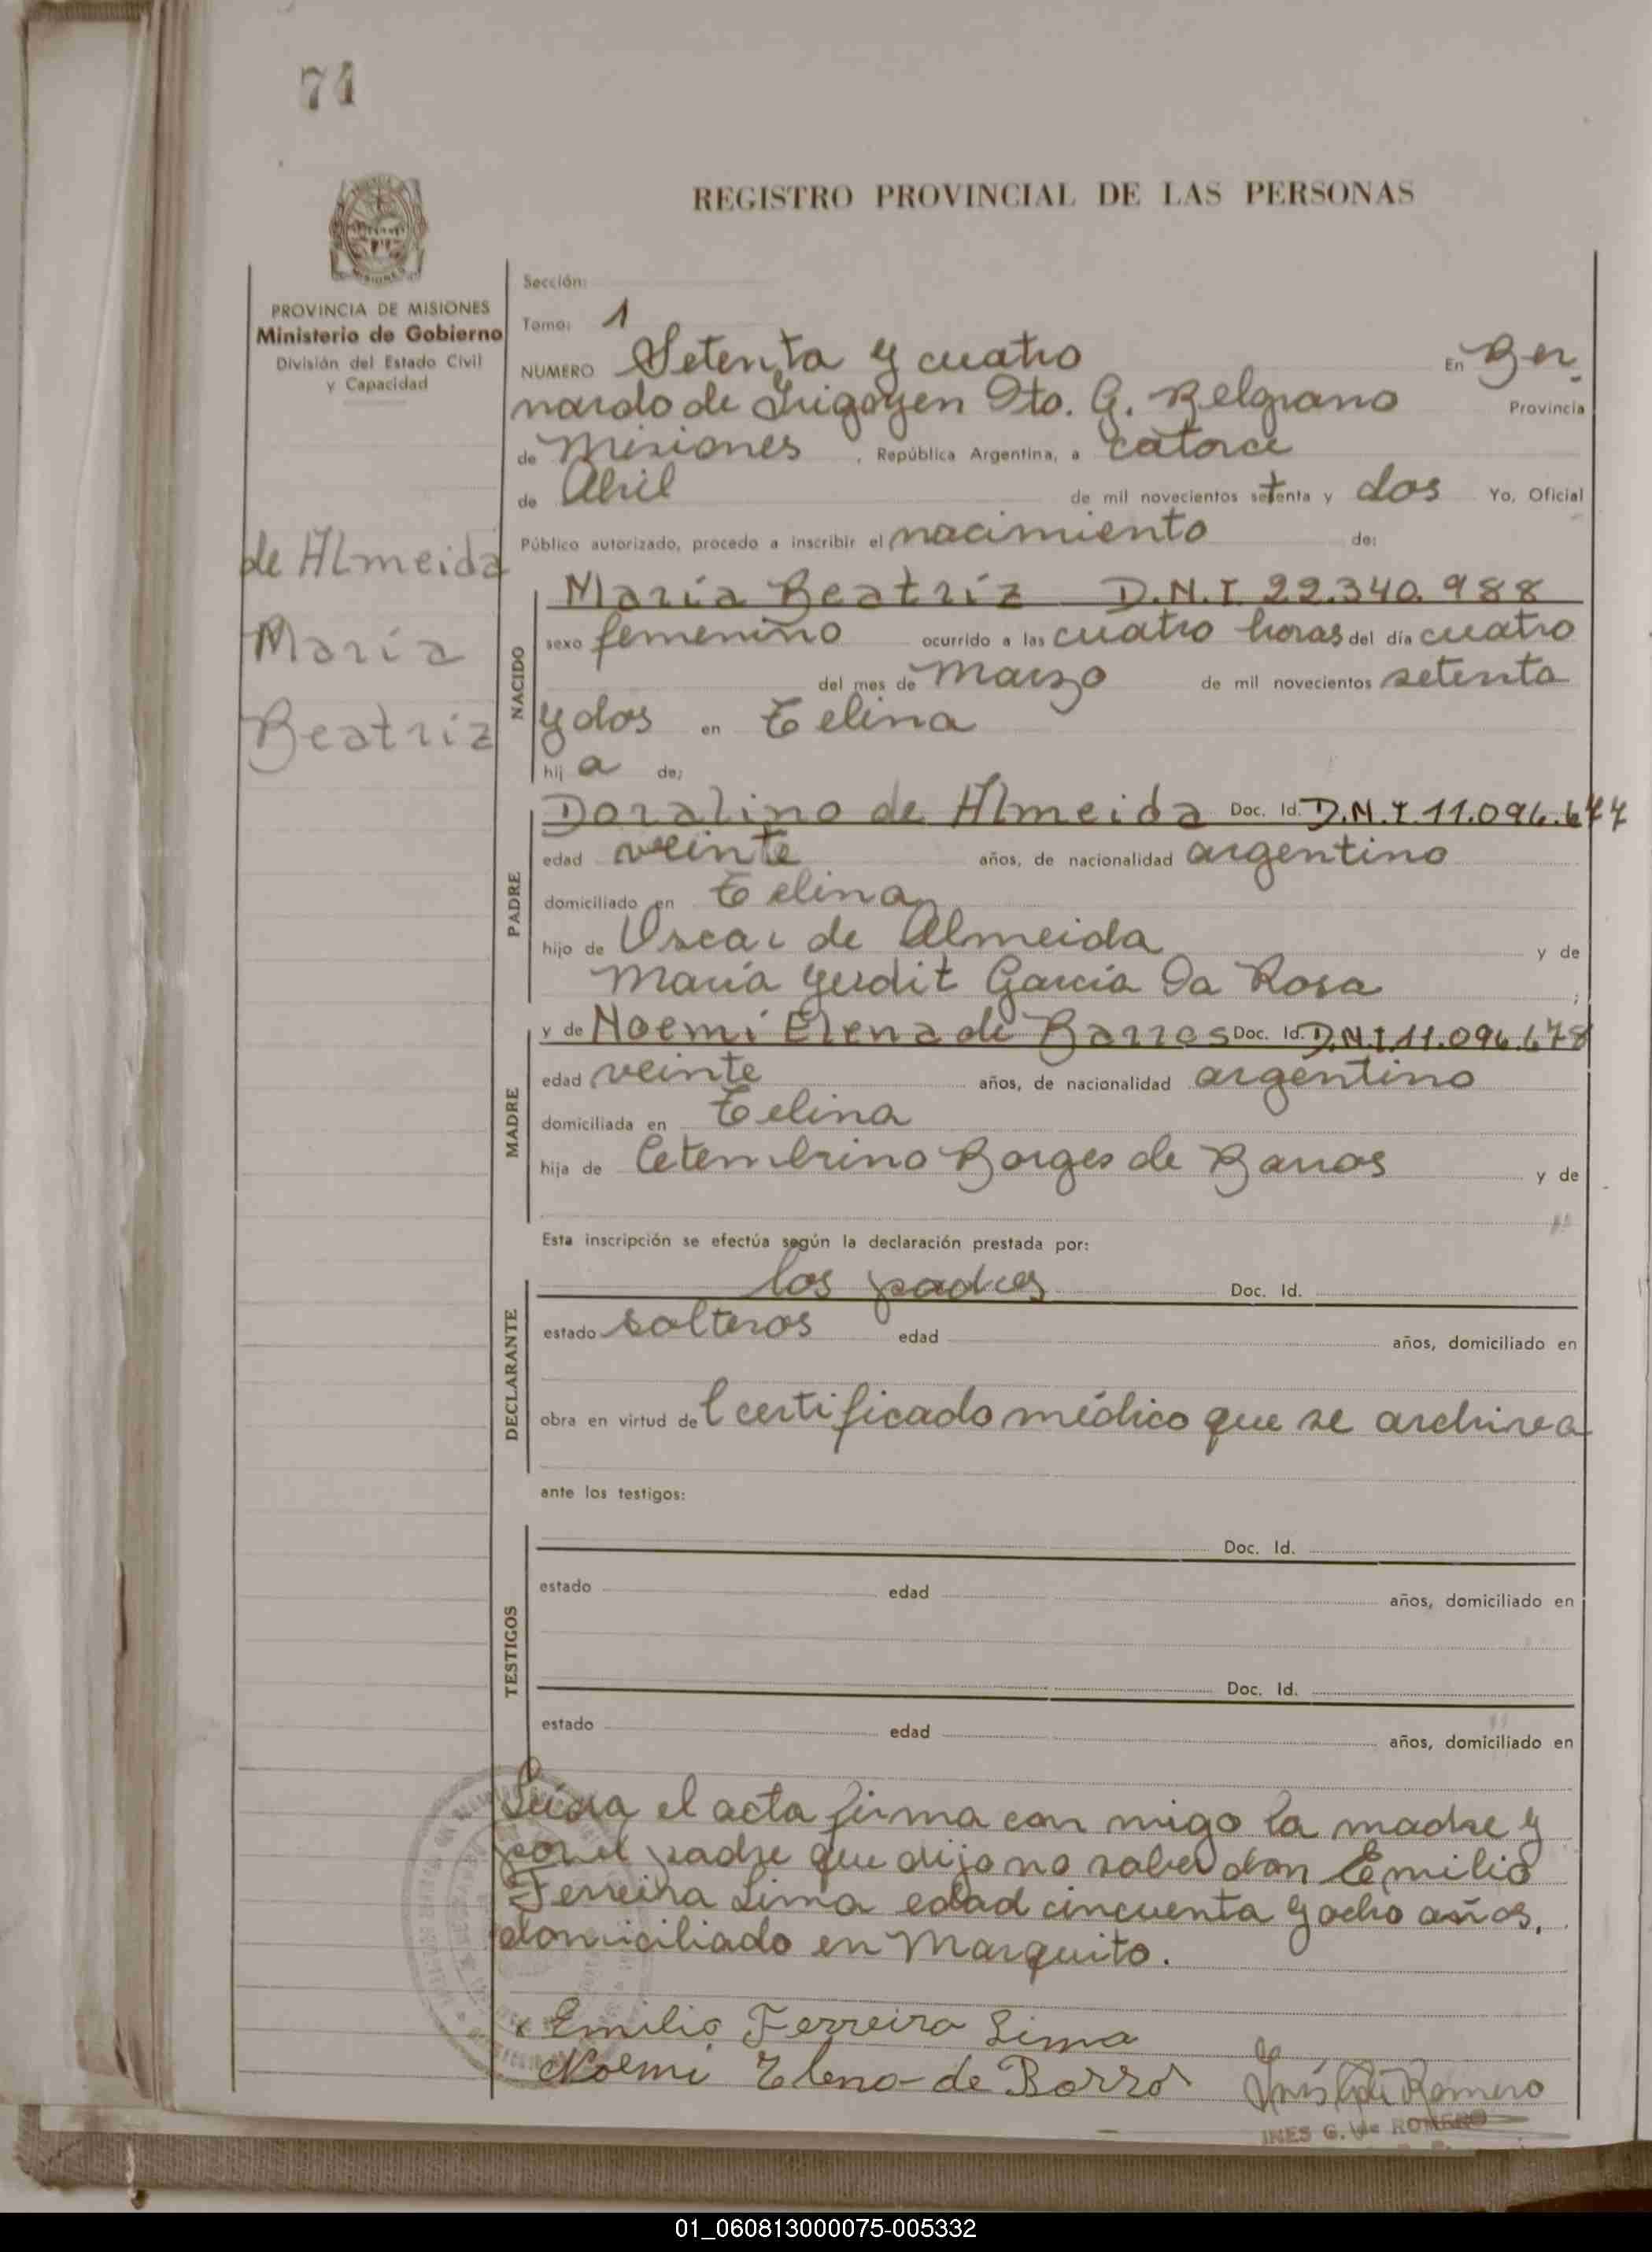 74
REGISTRO PROVINCIAL DE LAS PERSONAS
PROVINCIA DE MISIONES
Ministerio de Gobierno
División del Estado Civil
y Capacidad
de Almeida
María
Beatriz
Sección:
Tomo: 1
NUMERO Setenta y cuatro En Ber
nardo de Irigoyen Dto. G. Belgrano Provincia
de Misiones, República Argentina, a catorce
de Abril de mil novecientos setenta y dos Yo, Oficial
Público autorizado, procedo a inscribir el nacimiento de:
NACIDO
María Beatriz D.N.I 22.340.988
sexo femenino ocurrido a las cuatro horas del día cuatro
del mes de Marzo de mil novecientos setenta
y dos en Celina
hij a de:
PADRE
Doralino de Almeida Doc. Id. D.N.I. 11.096.
edad veinte años, de nacionalidad argentino
domiciliado en Celina
hijo de Oscar de Almeida y de
María Yudit García Da Rosa ;
MADRE
y de Noemí Elena de Barros Doc. Id. D.N.I. 11.096.678
edad veinte años, de nacionalidad argentino
domiciliada en Celina
hija de Cetembrino Borges de Barros y de
Esta inscripción se efectúa según la declaración prestada por:
DECLARANTE
los padres Doc. Id.
estado solteros edad años, domiciliado en
obra en virtud del certificado médico que se archiva
ante los testigos:
TESTIGOS
Doc. Id.
estado edad años, domiciliado en
Doc. Id.
estado edad años, domiciliado en
Leída el acta firma con migo la madre y
por el padre que dijo no saber don Emilio
Ferreira Lima edad cincuenta y ocho años,
domiciliado en Marquito.
x Emilio Ferreira Lima
Noemi Elena de Barros
Inés G. de Romero
INES G. de ROMERO
01_060813000075-005332